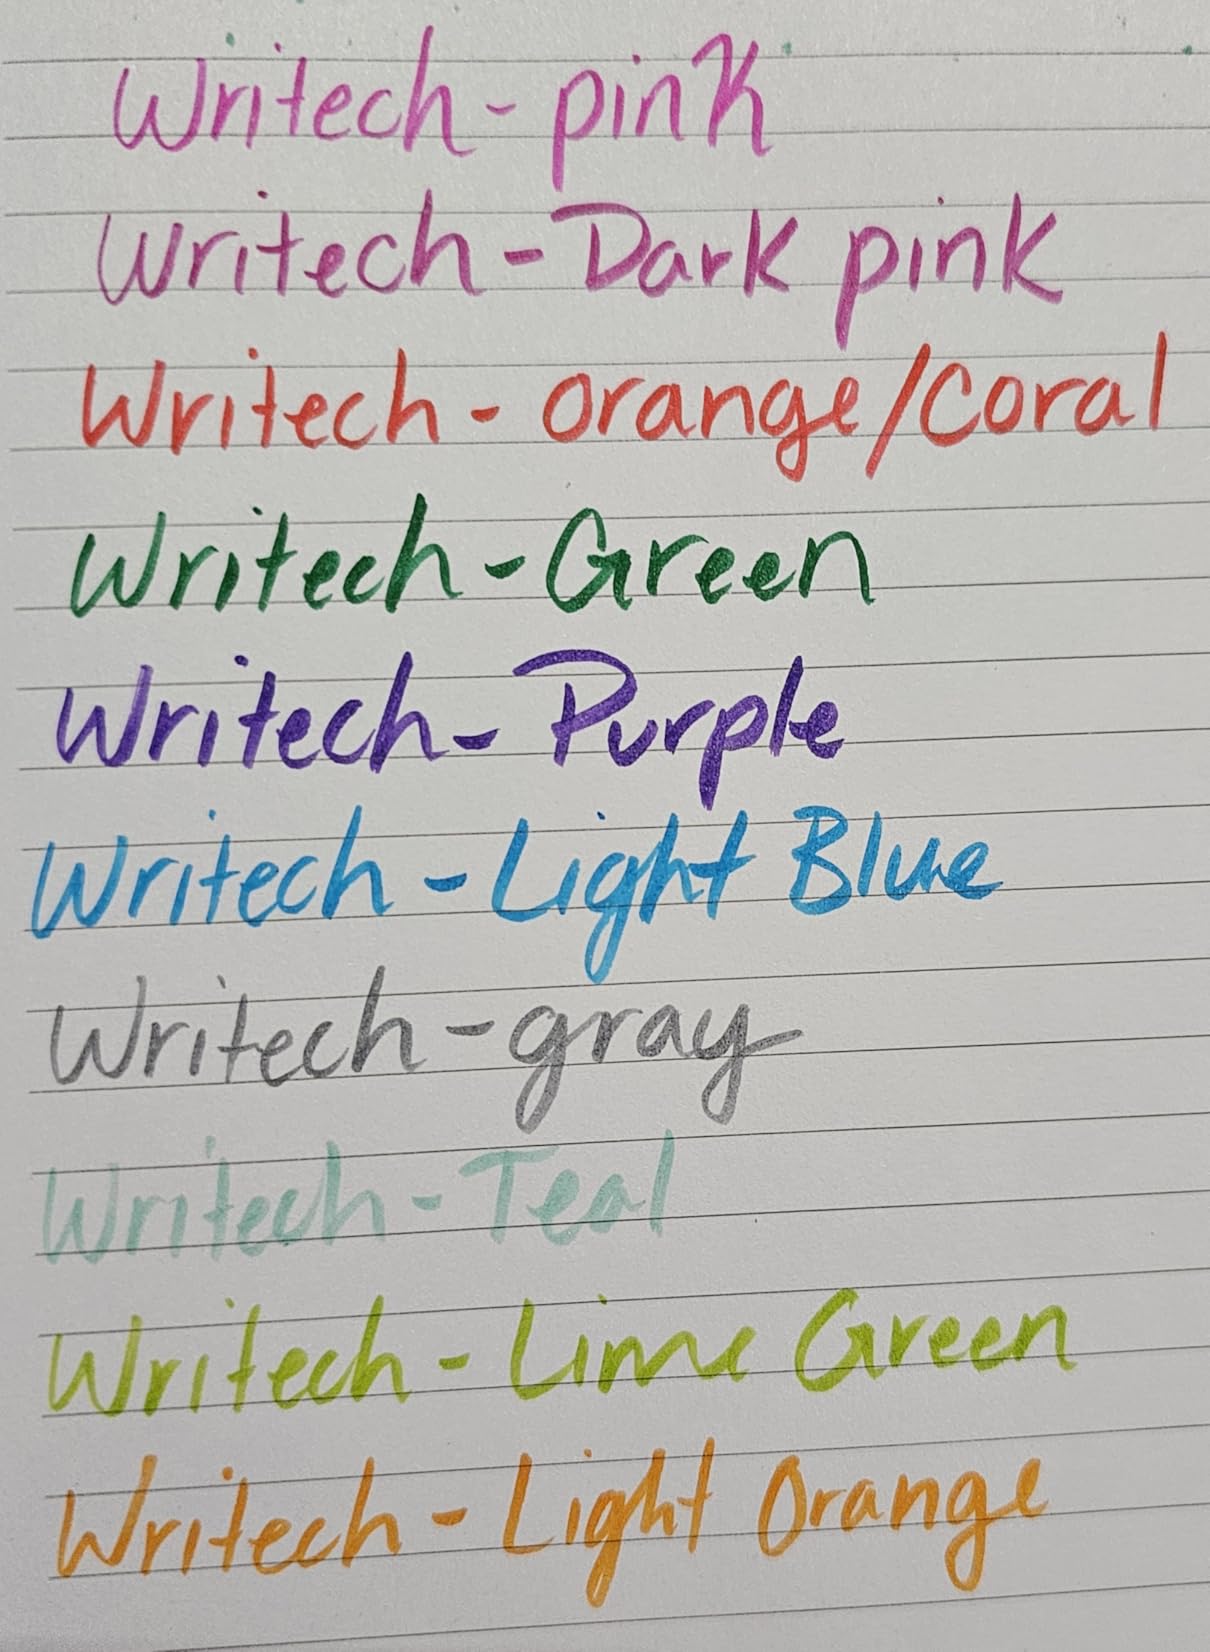 Writech - pink
Writech - Dark pink
Writech - orange/Coral
Writech - Green
Writech - Purple
Writech - Light Blue
Writech - gray
Writech - Teal
Writech - Lime Green
Writech - Light Orange